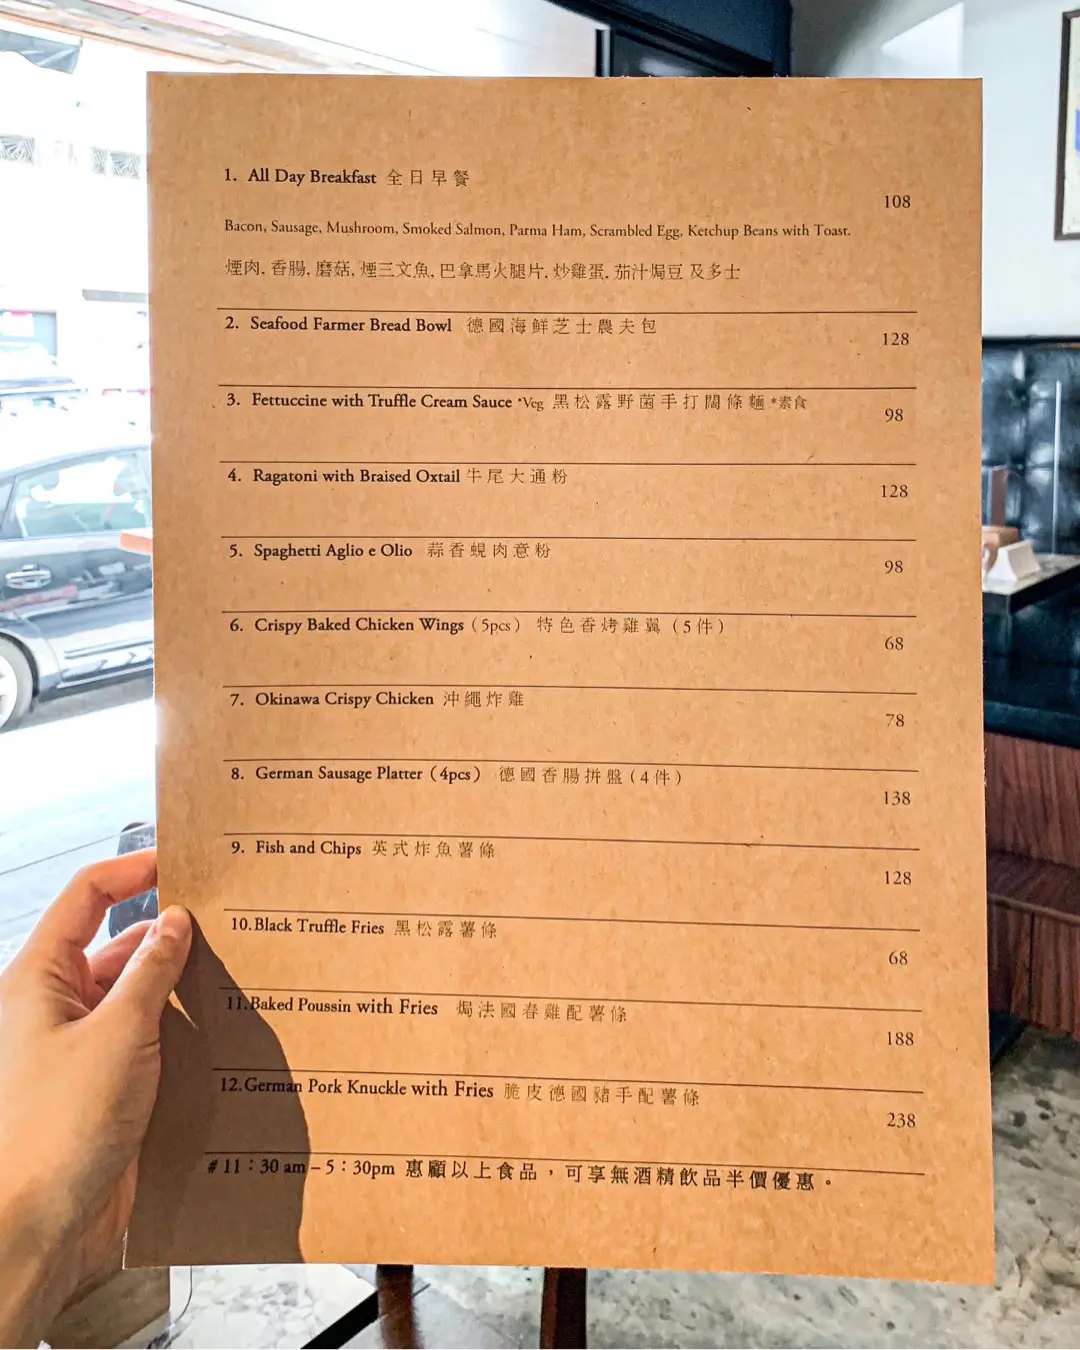 1. All Day Breakfast 全日早餐
108
Bacon, Sausage, Mushroom, Smoked Salmon, Parma Ham, Scrambled Egg, Ketchup Beans with Toast.
煙肉, 香腸, 磨菇, 煙三文魚, 巴拿馬火腿片, 炒雞蛋, 茄汁焗豆 及多士
2. Seafood Farmer Bread Bowl 德國海鮮芝士農夫包
128
3. Fettuccine with Truffle Cream Sauce *Veg 黑松露野菌手打闊條麵 *素食
98
4. Ragatoni with Braised Oxtail 牛尾大通粉
128
5. Spaghetti Aglio e Olio 蒜香蜆肉意粉
98
6. Crispy Baked Chicken Wings (5pcs) 特色香烤雞翼 (5件)
68
7. Okinawa Crispy Chicken 沖繩炸雞
78
8. German Sausage Platter (4pcs) 德國香腸拼盤 (4件)
138
9. Fish and Chips 英式炸魚薯條
128
10. Black Truffle Fries 黑松露薯條
68
11. Baked Poussin with Fries 焗法國春雞配薯條
188
12. German Pork Knuckle with Fries 脆皮德國豬手配薯條
238
# 11：30 am – 5：30pm 惠顧以上食品，可享無酒精飲品半價優惠。